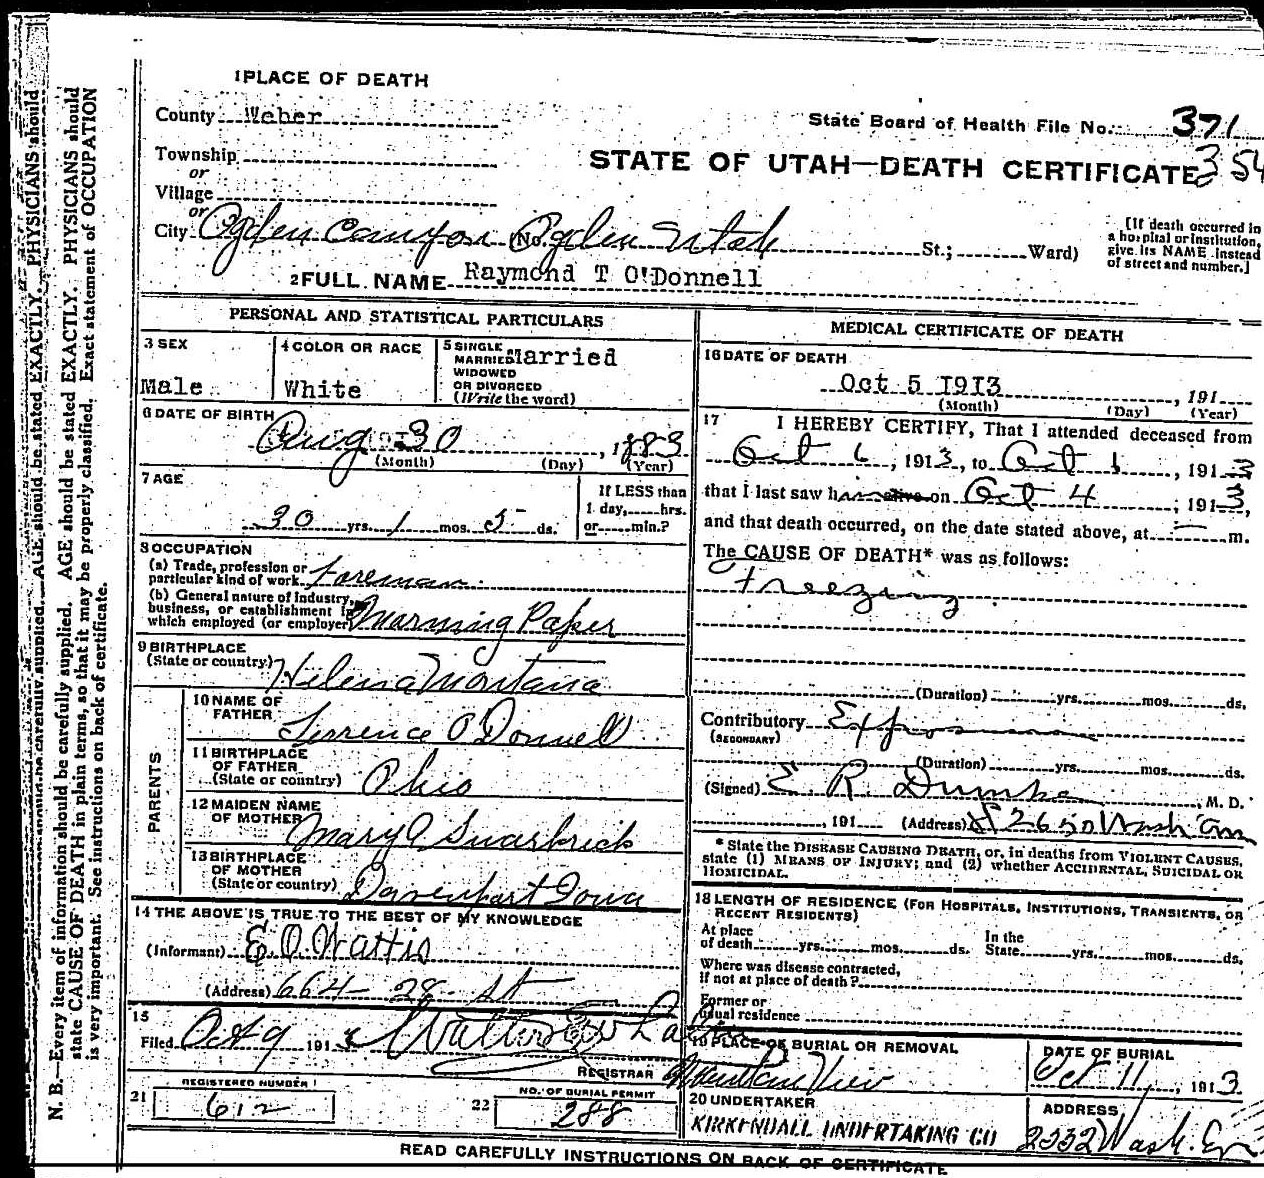 1 PLACE OF DEATH
County Weber
State Board of Health File No. 371
Township
or
STATE OF UTAH—DEATH CERTIFICATE 354
Village
or
City Ogden Canyon (No. Ogden Utah St.; Ward)
[If death occurred in
a hospital or institution,
give its NAME instead
of street and number.]
2 FULL NAME Raymond T O'Donnell
PERSONAL AND STATISTICAL PARTICULARS
3 SEX
Male
4 COLOR OR RACE
White
5 SINGLE
MARRIED Married
WIDOWED
OR DIVORCED
(Write the word)
6 DATE OF BIRTH
Aug 30, 1883
(Month) (Day) (Year)
7 AGE
30 yrs. 1 mos. 5 ds.
If LESS than
1 day, hrs.
or min.?
8 OCCUPATION
(a) Trade, profession or
particular kind of work Foreman
(b) General nature of industry,
business, or establishment in
which employed (or employer) Morning Paper
9 BIRTHPLACE
(State or country) Helena Montana
PARENTS
10 NAME OF
FATHER Terrence O'Donnell
11 BIRTHPLACE
OF FATHER
(State or country) Ohio
12 MAIDEN NAME
OF MOTHER Mary A Swarbrick
13 BIRTHPLACE
OF MOTHER
(State or country) Davenport Iowa
14 THE ABOVE IS TRUE TO THE BEST OF MY KNOWLEDGE
(Informant) E. O. Wattis
(Address) 664 - 28 - St
15
Filed Oct 9 1913
REGISTRAR
21 REGISTERED NUMBER
612
22 NO. OF BURIAL PERMIT
288
MEDICAL CERTIFICATE OF DEATH
16 DATE OF DEATH
Oct 5 1913, 191
(Month) (Day) (Year)
17 I HEREBY CERTIFY, That I attended deceased from
Oct 6, 1913, to Oct 6, 1913
that I last saw h alive on Oct 4, 1913,
and that death occurred, on the date stated above, at m.
The CAUSE OF DEATH* was as follows:
Freezing
(Duration) yrs. mos. ds.
Contributory Exposure
(SECONDARY)
(Duration) yrs. mos. ds.
(Signed) E. R. Dumke, M. D.
, 191 (Address) 2650 Wash Ave
* State the DISEASE CAUSING DEATH, or, in deaths from VIOLENT CAUSES,
state (1) MEANS OF INJURY; and (2) whether ACCIDENTAL, SUICIDAL OR
HOMICIDAL.
18 LENGTH OF RESIDENCE (FOR HOSPITALS, INSTITUTIONS, TRANSIENTS, OR
RECENT RESIDENTS)
At place
of death yrs. mos. ds.
In the
State yrs. mos. ds.
Where was disease contracted,
If not at place of death?
Former or
usual residence
19 PLACE OF BURIAL OR REMOVAL
Mountain View
DATE OF BURIAL
Oct 11, 1913
20 UNDERTAKER
KIRKENDALL UNDERTAKING CO
ADDRESS
2332 Wash. Av
READ CAREFULLY INSTRUCTIONS ON BACK OF CERTIFICATE
N. B.—Every item of information should be carefully supplied. AGE should be stated EXACTLY. PHYSICIANS should
state CAUSE OF DEATH in plain terms, so that it may be properly classified. Exact statement of OCCUPATION
is very important. See instructions on back of certificate.